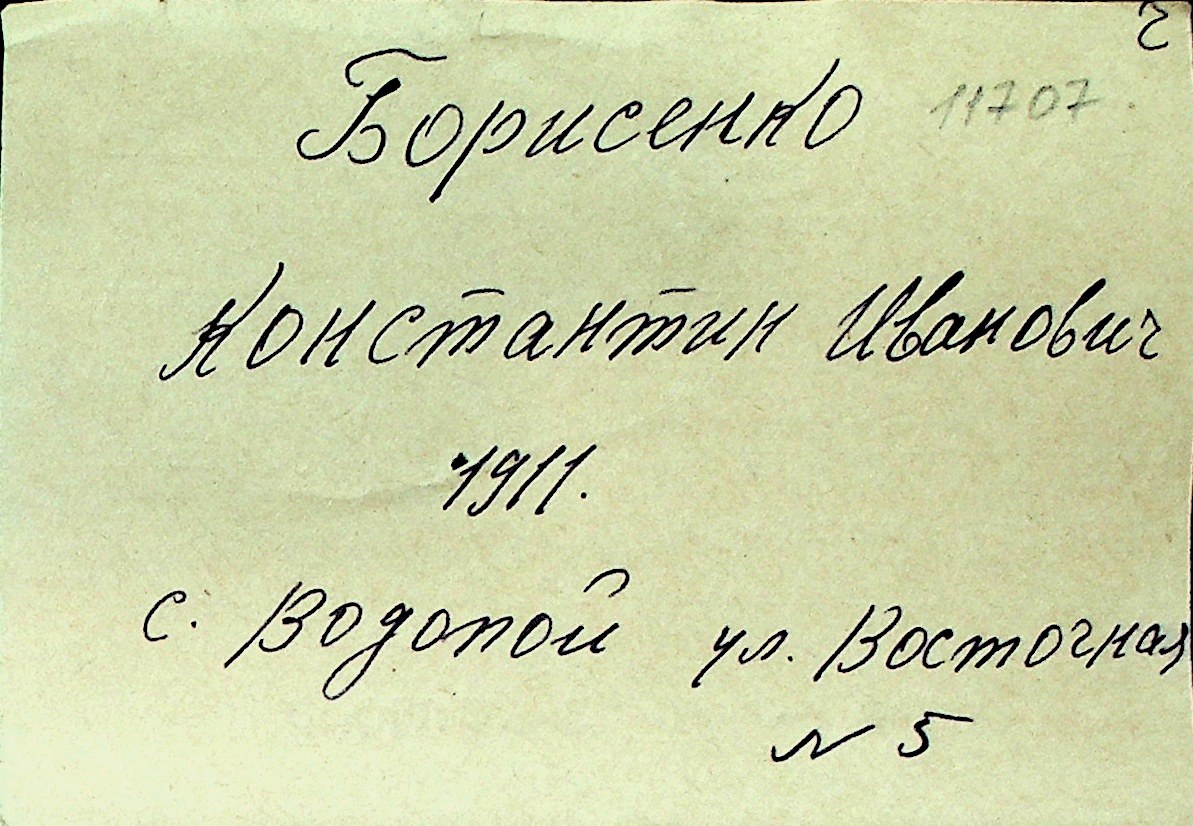 Борисенко 11707
Константин Иванович
1911.
с. Водопой ул. Восточная
N 5